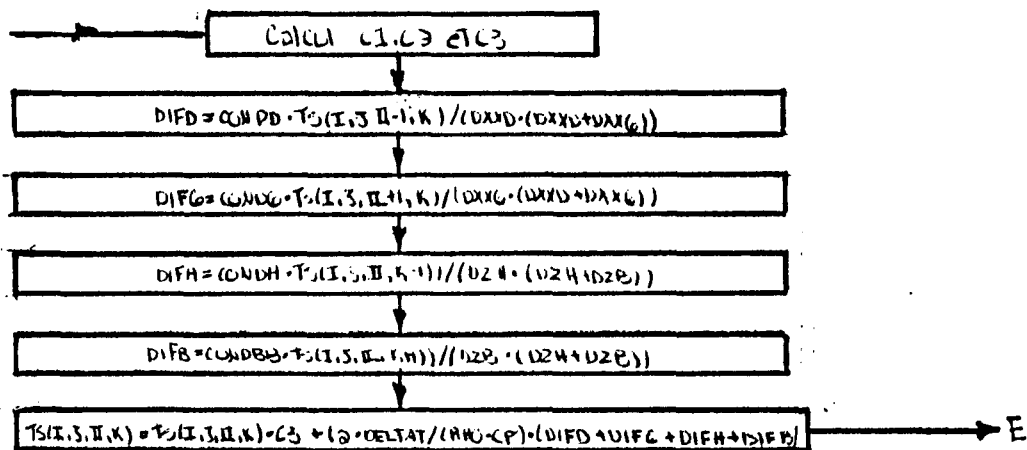 Calcul C1.C3 et C3
DIFD = CONDD · TS(I,J,II-1,K)/(DXXD·(DXXD+DXXG))
DIFG = CONDG · TS(I,J,II+1,K)/(DXXG·(DXXD+DXXG))
DIFH = (CONDH · TS(I,J,II,K-1))/(DZH·(DZH+DZB))
DIFB = (CONDBB · TS(I,J,II, ))/(DZB·(DZH+DZB))
TS(I,J,II,K) = TS(I,J,II,K)·C3 + (2·DELTAT/(RHO·CP)·(DIFD+DIFG+DIFH+DIFB)
E